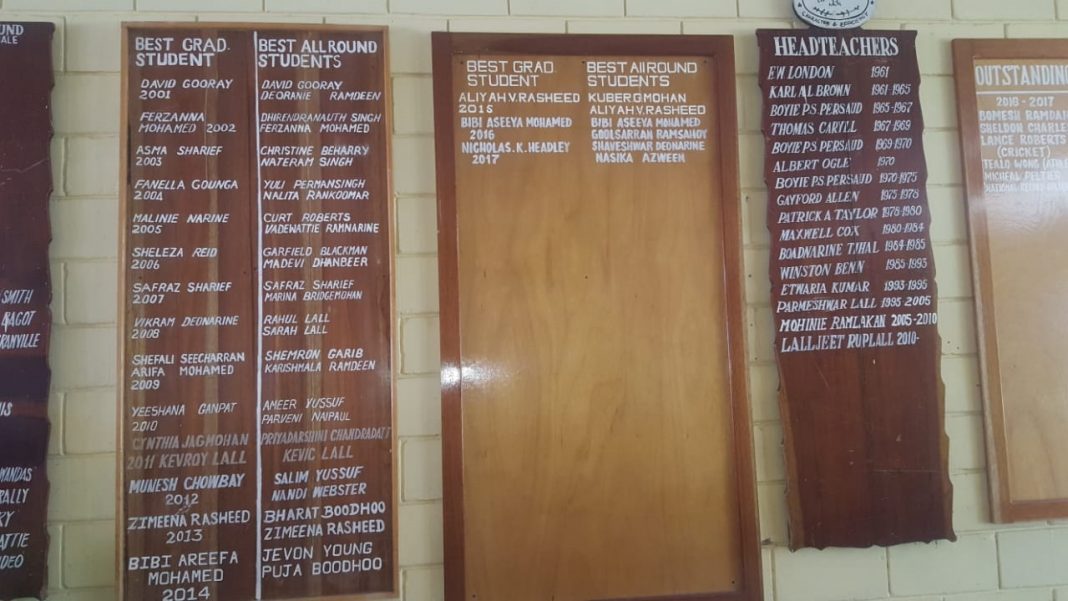 OUND
ALE
SMITH
BAGOT
RANVILLE
WANDAS
RALLY
KY
ATTIE
DEO
BEST GRAD.
STUDENT
DAVID GOORAY
2001
FERZANNA
MOHAMED 2002
ASMA SHARIEF
2003
FANELLA GOUNGA
2004
MALINIE NARINE
2005
SHELEZA REID
2006
SAFRAZ SHARIEF
2007
VIKRAM DEONARINE
2008
SHEFALI SEECHARRAN
ARIFA MOHAMED
2009
YEESHANA GANPAT
2010
CYNTHIA JAGMOHAN
2011 KEVROY LALL
MUNESH CHOWBAY
2012
ZIMEENA RASHEED
2013
BIBI AREEFA
MOHAMED
2014
BEST ALLROUND
STUDENTS
DAVID GOORAY
DEORANIE RAMDEEN
DHIRENDRANAUTH SINGH
FERZANNA MOHAMED
CHRISTINE BEHARRY
NATERAM SINGH
YULI PERMANSINGH
NALITA RANKOOMAR
CURT ROBERTS
VADEWATTIE RAMNARINE
GARFIELD BLACKMAN
MADEVI DHANBEER
SAFRAZ SHARIEF
MARINA BRIDGEMOHAN
RAHUL LALL
SARAH LALL
SHEMRON GARIB
KARISHMALA RAMDEEN
AMEER YUSSUF
PARVENI NAIPAUL
PRIYADARSHINI CHANDRADATT
KEVIC LALL
SALIM YUSSUF
NANDI WEBSTER
BHARAT BOODHOO
ZIMEENA RASHEED
JEVON YOUNG
PUJA BOODHOO
BEST GRAD.
STUDENT
ALIYAH.V.RASHEED
2015
BIBI ASEEYA MOHAMED
2016
NICHOLAS.K.HEADLEY
2017
BEST AllROUND
STUDENTS
KUBER.G.MOHAN
ALIYAH.V.RASHEED
BIBI ASEEYA MOHAMED
GOOLSARRAN RAMSAHOY
SHAVESHWAR DEONARINE
NASIKA AZWEEN
HEADTEACHERS
E.W LONDON 1961
KARL AL BROWN 1961-1965
BOYIE P.S PERSAUD 1965-1967
THOMAS CARYLL 1967-1969
BOYIE P.S PERSAUD 1969-1970
ALBERT OGLE 1970
BOYIE P.S PERSAUD 1970-1975
GAYFORD ALLEN 1975-1978
PATRICK A TAYLOR 1978-1980
MAXWELL COX 1980-1984
BOADWARINE TJHAL 1984-1985
WINSTON BENN 1985-1993
ETWARIA KUMAR 1993-1995
PARMESHWAR LALL 1995-2005
MOHINIE RAMLAKAN 2005-2010
LALLJEET RUPLALL 2010-
OUTSTANDING
2010 - 2017
ROMESH RAMDAN
SHELDON CHARLE
LANCE ROBERTS
(CRICKET)
TEALO WONG
MICHEAL PELTIER
NATIONAL RECORD